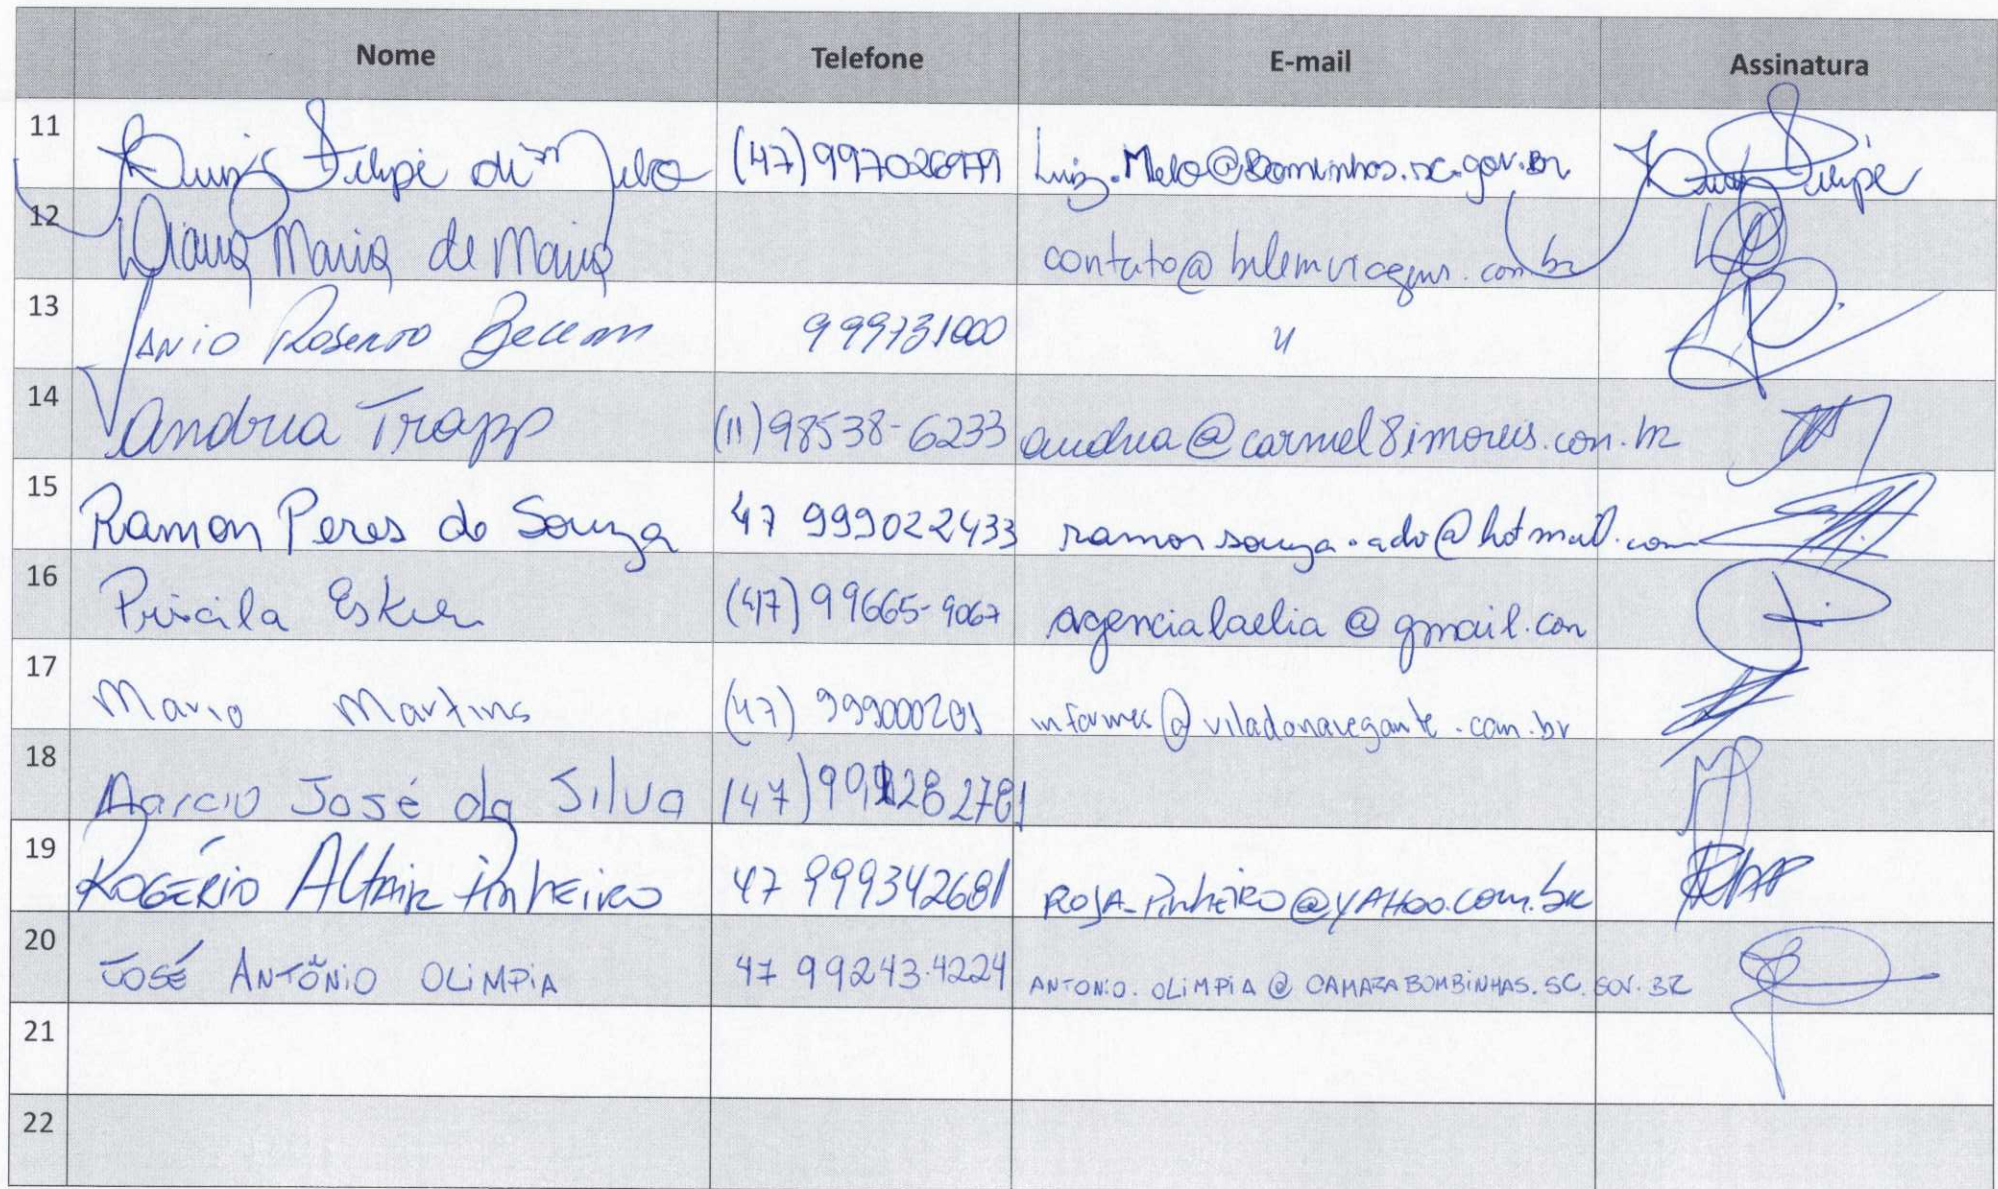 Nome Telefone E-mail Assinatura
11 Luiz Felipe de Melo (47) 997026979 Luiz.Melo@Bombinhas.sc.gov.Br Luiz Felipe
12 Diana Maria de Maria contato@belemviagens.com.br
13 Rosendo 999731000 "
14 Andréia Trapp (11) 98538-6233 andreia@carmel8imoveis.com.br
15 Ramon Peres de Souza 47 999022433 ramonsouza.adv@hotmail.com
16 Priscila Esker (47) 99665-9067 agencialaelia@gmail.com
17 Mario Martins (47) 999000201 informes@viladonavegante.com.br
18 Marcio José da Silva (47)
19 Rogério Altair Pinheiro 47 999342681 Roja_Pinheiro@yahoo.com.br
20 JOSÉ ANTÔNIO OLIMPIA 47 99243.4224 ANTONIO.OLIMPIA@CAMARABOMBINHAS.SC.GOV.BR
21
22